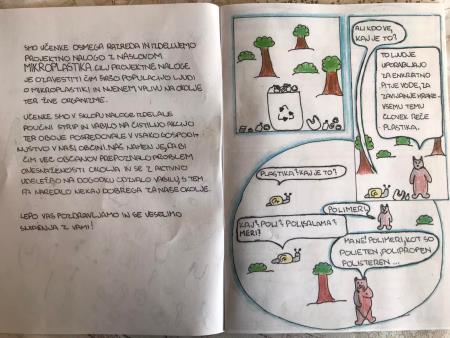 SMO UČENKE OSMEGA RAZREDA IN IZDELUJEMO
PROJEKTNO NALOGO Z NASLOVOM
MIKROPLASTIKA. CILJ PROJEKTNE NALOGE
JE OZAVESTITI ČIM ŠIRŠO POPULACIJO LJUDI
O MIKROPLASTIKI IN NJENEM VPLIVU NA OKOLJE
TER ŽIVE ORGANIZME.
UČENKE SMO V SKLOPU NALOGE IZDELALE
POUČNI STRIP IN VABILO NA ČISTILNO AKCIJO
TER OBOJE POSREDOVALE V VSAKO GOSPODI-
NJSTVO V NAŠI OBČINI. NAŠ NAMEN JE, DA BI
ČIM VEČ OBČANOV PREPOZNALO PROBLEM
ONESNAŽENOSTI OKOLJA IN SE Z AKTIVNO
UDELEŽBO NA DOGODKU ODZVALO VABILU, S TEM
PA NAREDILO NEKAJ DOBREGA ZA NAŠE OKOLJE.
LEPO VAS POZDRAVLJAMO IN SE VESELIMO
SNIDENJA Z VAMI!
ALI KDO VE,
KAJ JE TO?
TO LJUDJE
UPORABLJAJO
ZA ENKRATNO
PITJE VODE, ZA
ZAVIJANJE HRANE -
VSEMU TEMU
ČLOVEK REČE
PLASTIKA.
PLASTIKA? KAJ JE TO?
POLIMERI,
KAJ? POLI? POLISALAMA?
MERI?
MA NE! POLIMERI, KOT SO
POLIETEN, POLIPROPEN
POLISTEREN ...